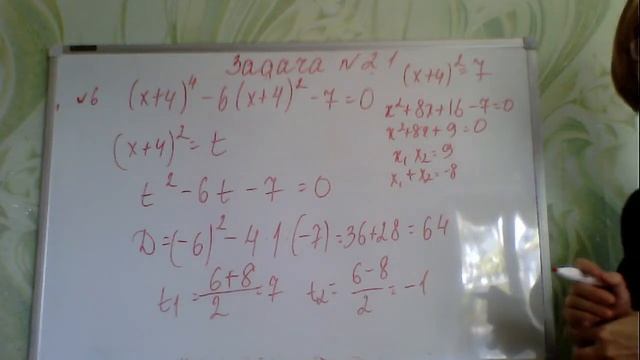 Задача №21
№6 (x+4)⁴ - 6(x+4)² - 7 = 0
(x+4)² = t
t² - 6t - 7 = 0
D = (-6)² - 4·1·(-7) = 36 + 28 = 64
t₁ = (6+8)/2 = 7 t₂ = (6-8)/2 = -1
(x+4)² = 7
x² + 8x + 16 - 7 = 0
x² + 8x + 9 = 0
x₁ x₂ = 9
x₁ + x₂ = -8